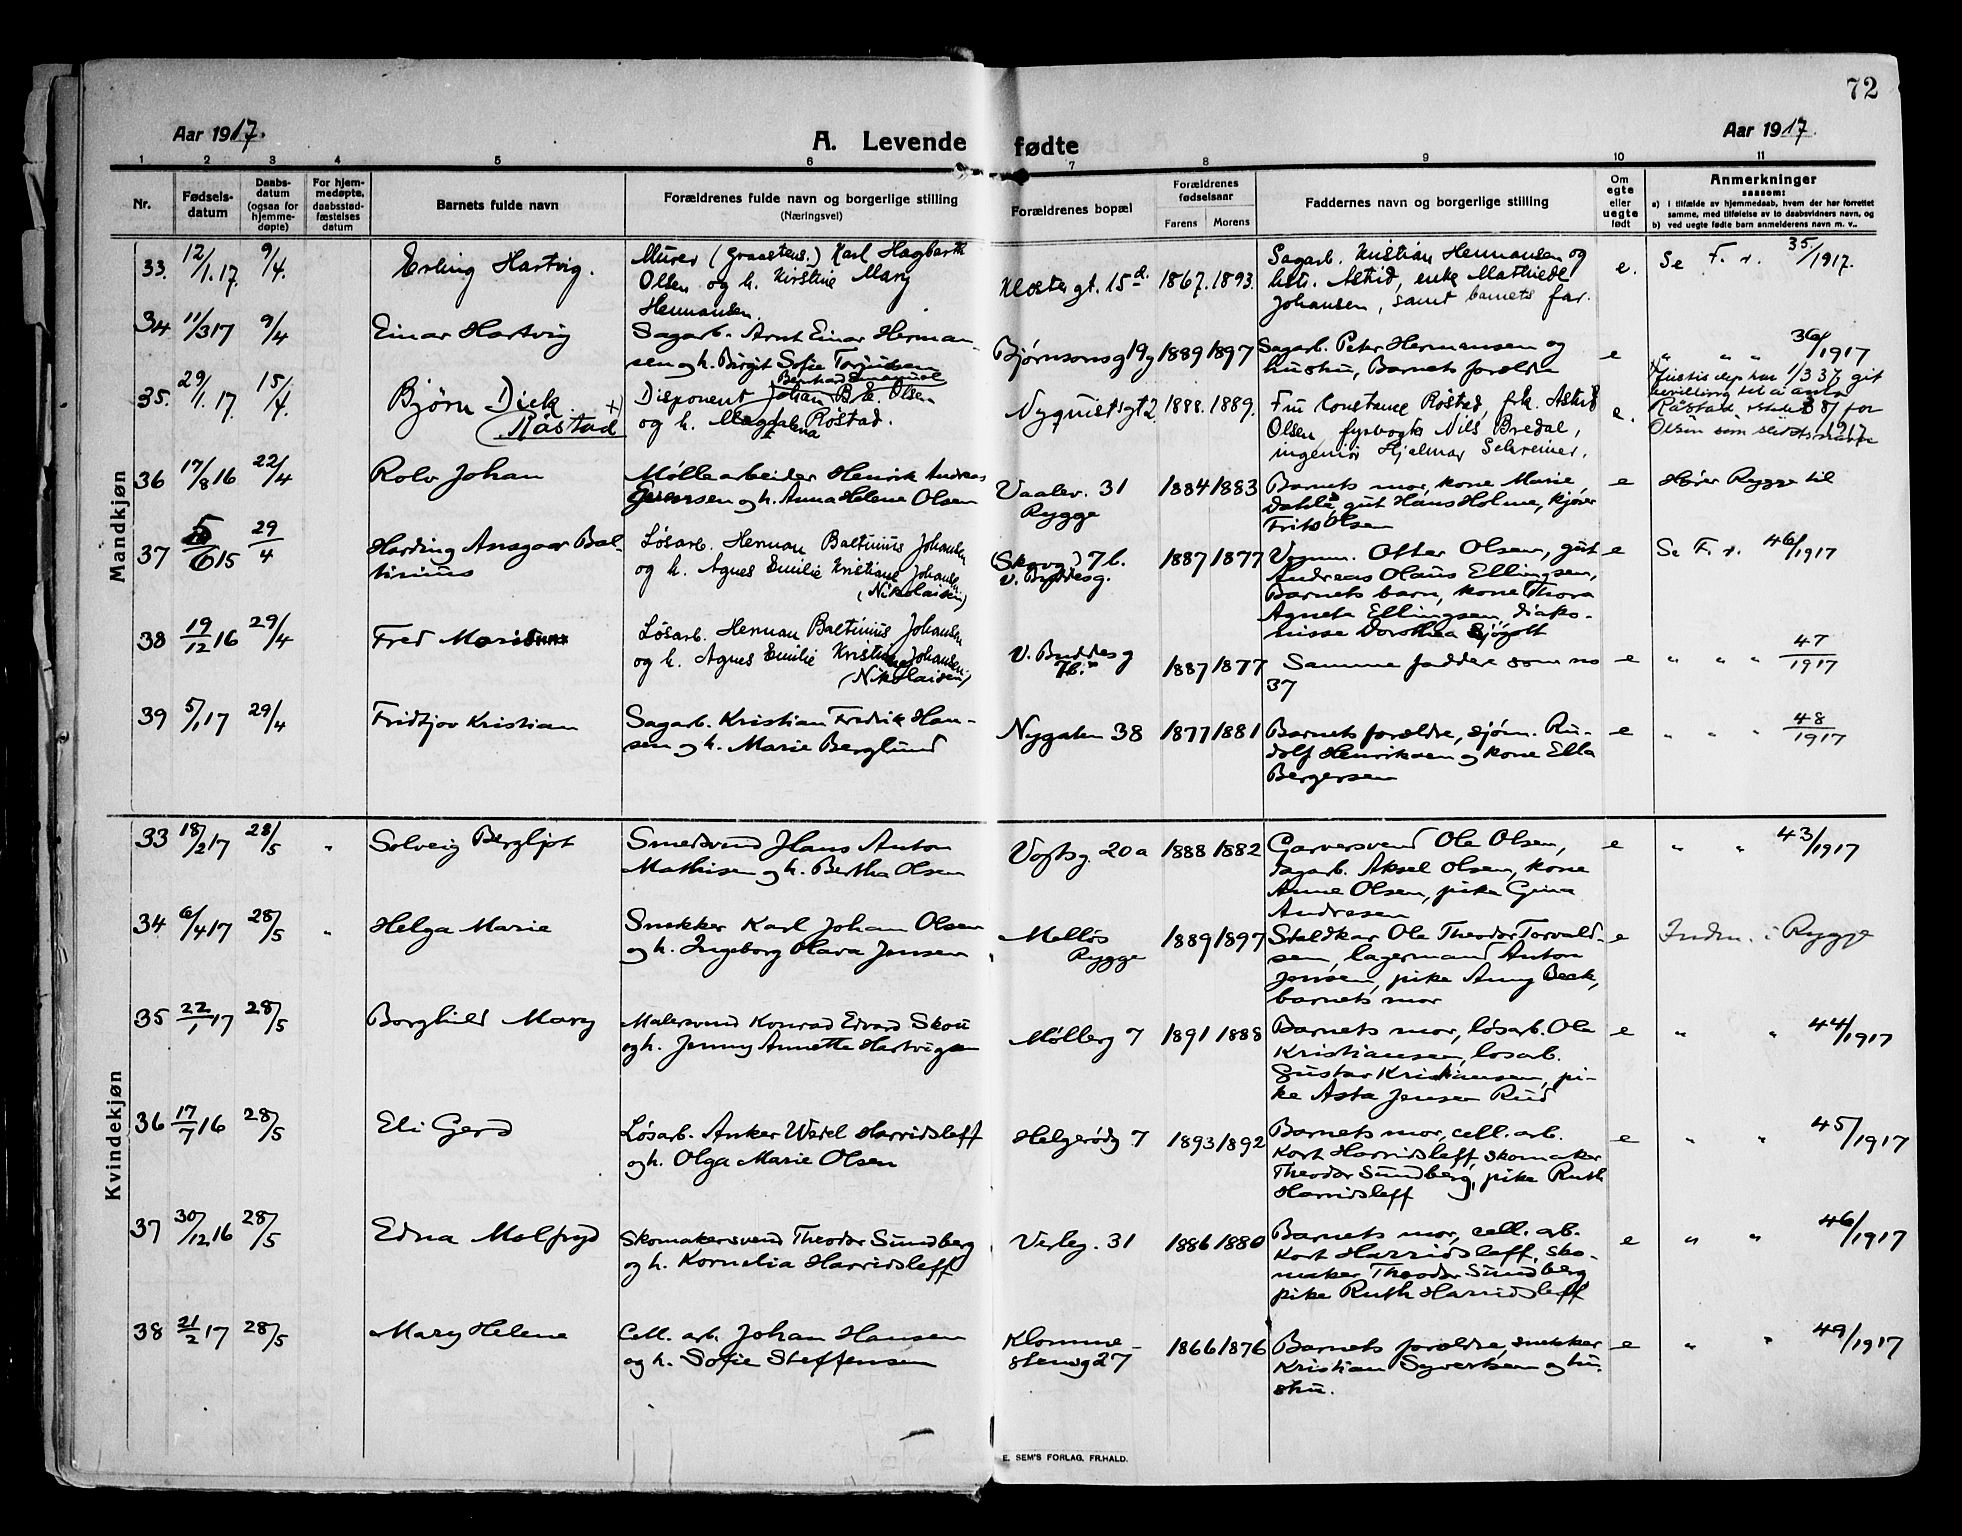 72
Aar 1917.
A. Levende fødte
Aar 1917.
1 2 3 4 5 6 7 8 9 10 11
Nr.
Fødsels-
datum
Daabs-
datum
(ogsaa for
hjemme-
døpte)
For hjem-
medøpte,
daabsstad-
fæstelses
datum
Barnets fulde navn
Forældrenes fulde navn og borgerlige stilling
(Næringsvei)
Forældrenes bopæl
Forældrenes
fødselsaar
Farens Morens
Faddernes navn og borgerlige stilling
Om
egte
eller
uegte
født
Anmerkninger
saasom:
a) i tilfælde av hjemmedaab, hvem der har forrettet
samme, med tilføielse av to daabsvidners navn, og
b) ved uegte fødte barn anmelderens navn m. v..
Mandkjøn
33. 12/1.17. 9/4. Erling Hartvig.
Murer (Graastens.) Karl Hagbarth
Olsen og h. Kirstine Mary
Hermansen.
Klostergt. 15d. 1867. 1893.
Sagarb. Kristian Hermansen og
hstr. Astrid, enke Mathilde
Johansen, samt barnets far.
e. Se F. r. 35/1917.
34 11/3 17 9/4 Einar Hartvig
Sagarb. Arnt Einar Herman-
sen og h. Birgit Sofie Torjusen
Bjørnsonsg 19g 1889 1897
Sagarb. Peter Hermansen og
hustru, Barnets forældre
e " " " 36/1917
35. 29/1.17. 15/4. Bjørn Dick +)
(Råstad
Bernhard Emanuel
Disponent Johan B. E. Olsen
og h. Magdalena Røstad.
Nyquistsgt 2. 1888. 1889.
Fru Constance Røstad, frk. Astrid
Olsen, fyrvogte Nils Bredal,
ingeniør Hjalmar Schreiner.
e.
+) Justisdep har 1/3 37 git
bevilling til å anta
Råstad istedet for
Olsen som slektsnavn
38/1917
36 17/8 16 22/4 Rolv Johan
Møllearbeider Henrik Andreas
Syversen og h. Anna Helene Olsen
Vaalev. 31
Rygge
1884 1883
Barnets mor, kone Marie
Dahle, gut Hans Holme, kjører
Frits Olsen
e Hører Rygge til
37 5/6 15 29/4 Harding Ansgar Bal-
tinius
Løsarb. Herman Baltinius Johansen
og h. Agnes Emilie Kristiane Johansen
(Nikolaisen)
(Skovg) 7b.
v. Buddesg.
1887 1877
Vognm. Otter Olsen, gut
Andreas Olaus Ellingsen,
Barnets barn, kone Thora
Agneta Ellingsen, diako-
nisse Dorothea Sjøholt
e Se F. r. 46/1917
38 19/12 16 29/4 Fred
Løsarb. Herman Baltinius Johansen
og h. Agnes Emilie Kristiane Johansen
(Nikolaisen)
v. Buddesg
7b.
1887 1877
Samme faddere som no
37
e " " " 47/1917
39 5/1 17 29/4 Fridtjov Kristian
Sagarb. Kristian Fredrik Han-
sen og h. Marie Berglund
Nygaten 38 1877 1881
Barnets forældre, sjøm. Ru-
dolf Henriksen og kone Ella
Bergersen
e " " " 48/1917
Kvindekjøn
33 18/2 17 28/5 " Solveig Bergljot
Smedsvend Hans Anton
Mathisen og h. Bertha Olsen
Vogtsg. 20a 1888 1882
Garversvend Ole Olsen,
sagarb. Aksel Olsen, kone
Anne Olsen, pike Gina
Andresen
e " " 43/1917
34 6/4 17 28/5 " Helga Marie
Snekker Karl Johan Olsen
og h. Ingeborg Olava Jensen
Melløs
Rygge
1889 1897
Staldkar Ole Theodor Torvald-
sen, lagermand Anton
Jensen, pike Anny Beck,
barnets mor
e Indm. i Rygge
35 22/1 17 28/5 Borghild Mary
Malersvend Konrad Edvard Skou
og h. Jenny Annette Hartvigsen
Møllerg 7 1891 1888
Barnets mor, løsarb. Ole
Kristiansen, løsarb.
Gustav Kristiansen, pi-
ke Asta Jensen Rud
e " " 44/1917
36 17/7 16 28/5 Eli Gerd
Løsarb. Anker Wedel Harridsleff
og h. Olga Marie Olsen
Helgerødg 7 1893 1892
Barnets mor, cell. arb.
Kort Harridsleff, skomaker
Theodor Sundberg, pike Ruth
Harridsleff
e " " 45/1917
37 30/12 16 28/5 Edna Malfryd
Skomakersvend Theodor Sundberg
og h. Kornelia Harridsleff
Verleg. 31 1886 1880
Barnets mor, cell. arb.
Kort Harridsleff, sko-
maker Theodor Sundberg
pike Ruth Harridsleff
e " " 46/1917
38 21/2 17 28/5 Mary Helene
Cell. arb. Johan Hansen
og h. Sofie Steffensen
Klomme-
stensg 27
1866 1876
Barnets forældre, snekker
Kristian Syvertsen og hu-
stru.
e " " 49/1917
E. SEM'S FORLAG. FR.HALD.